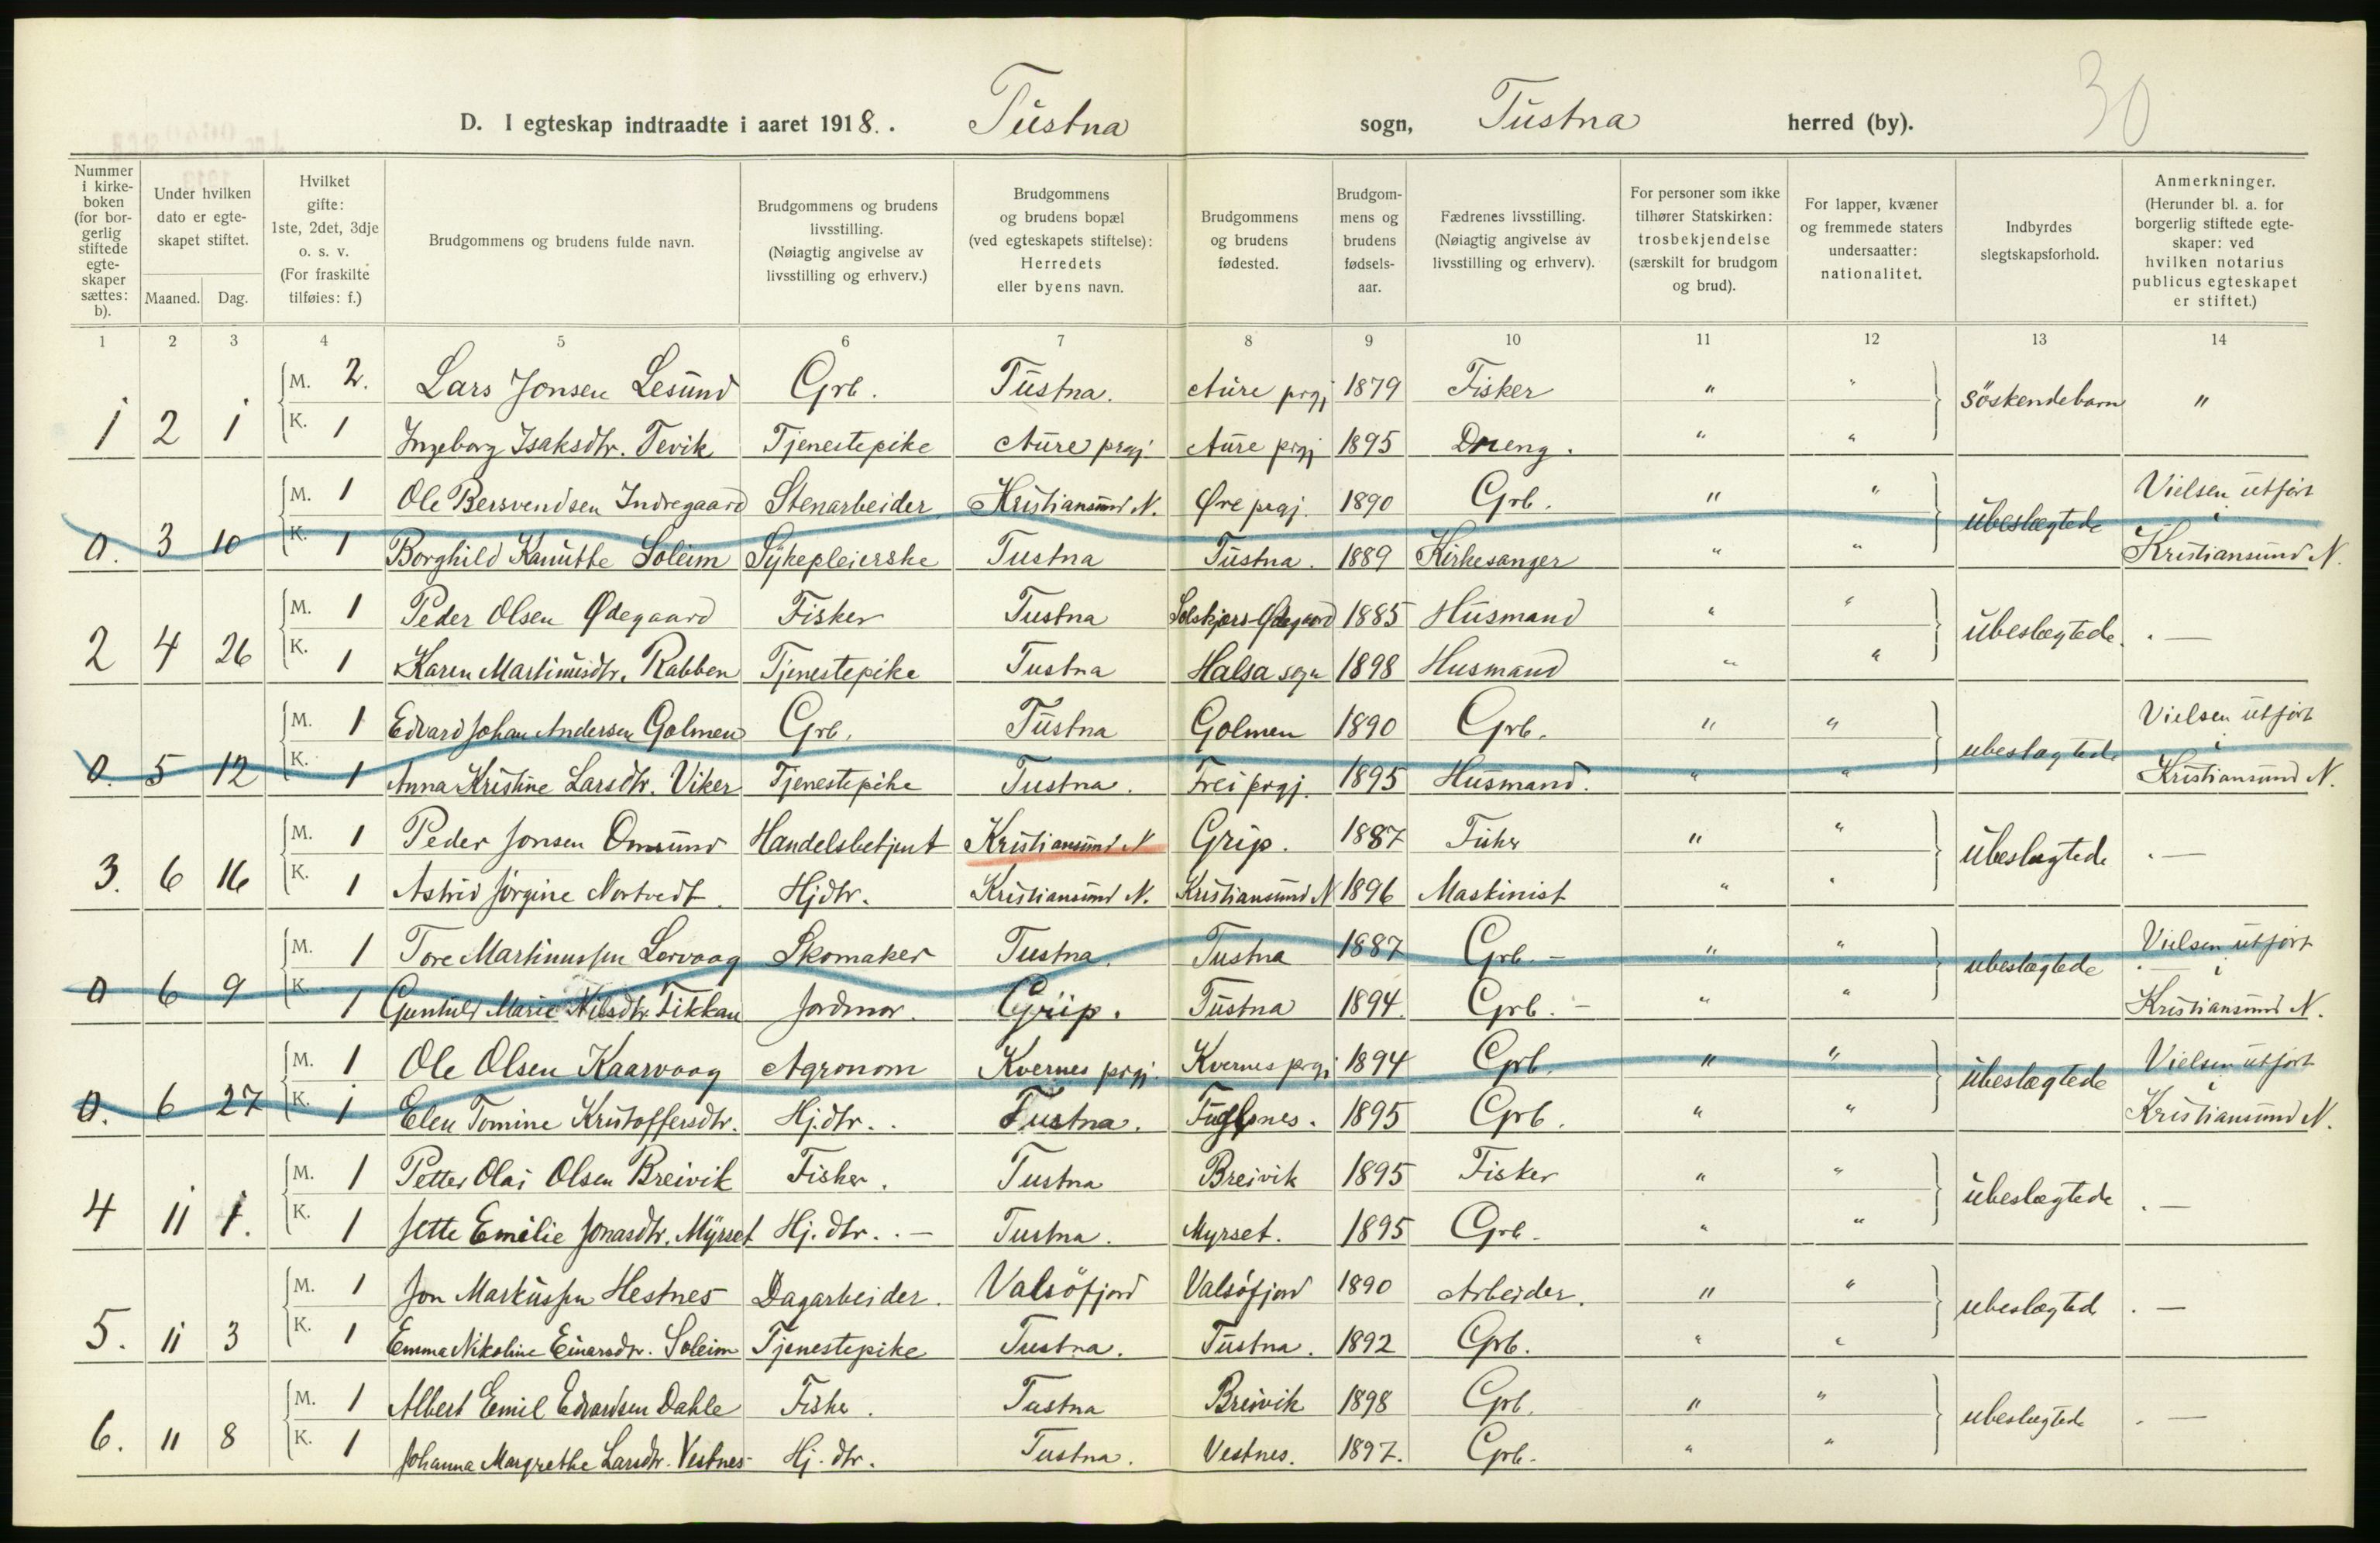 30
D. I egteskap indtraadte i aaret 1918. . Tustna sogn, Tustna herred (by).
Nummer i kirke-boken (for bor-gerlig stiftede egte-skaper sættes: b).
Under hvilken dato er egte-skapet stiftet.
Maaned. Dag.
Hvilket gifte: 1ste, 2det, 3dje o. s. v. (For fraskilte tilføies: f.)
Brudgommens og brudens fulde navn.
Brudgommens og brudens livsstilling. (Nøiagtig angivelse av livsstilling og erhverv.)
Brudgommens og brudens bopæl (ved egteskapets stiftelse): Herredets eller byens navn.
Brudgommens og brudens fødested.
Brudgom-mens og brudens fødsels-aar.
Fædrenes livsstilling. (Nøiagtig angivelse av livsstilling og erhverv).
For personer som ikke tilhører Statskirken: trosbekjendelse (særskilt for brudgom og brud).
For lapper, kvæner og fremmede staters undersaatter: nationalitet.
Indbyrdes slegtskapsforhold.
Anmerkninger. (Herunder bl. a. for borgerlig stiftede egte-skaper: ved hvilken notarius publicus egteskapet er stiftet.)
1 2 3 4 5 6 7 8 9 10 11 12 13 14
M. 2. Lars Jonsen Lesund Grb. Tustna. Aure prgj 1879 Fisker " "
1 2 1 søskendebarn "
K. 1 Ingeborg Isaksdtr. Tevik Tjenestepike Aure prgj. Aure prgj 1895 Dreng. " "
M. 1 Ole Bersvendsen Indregaard Stenarbeider Kristiansund N. Øre prgj. 1890 Grb. " " Vielsen utført
0. 3 10 ubeslegtede i
K. 1 Borghild Kanutte Soleim Sykepleierske Tustna Tustna. 1889 Kirkesanger " " Kristiansund N.
M. 1 Peder Olsen Ødegaard Fisker Tustna Solskjærs-Ødegaard 1885 Husmand " "
2 4 26 ubeslegtede. . —
K. 1 Karen Martinusdtr. Rabben Tjenestepike Tustna Halsa sogn 1898 Husmand " "
M. 1 Edvard Johan Andersen Golmen Grb. Tustna Golmen 1890 Grb. " " Vielsen utført
0. 5 12 ubeslegtede i
K. 1 Anna Kristine Larsdtr. Viker Tjenestepike Tustna. Frei prgj. 1895 Husmand. " " Kristiansund N.
M. 1 Peder Jonsen Omsund Handelsbetjent Kristiansund N Grip. 1887 Fisker " "
3. 6 16 ubeslegtede . —
K. 1 Astrid Jørgine Nortvedt. Hjdtr. Kristiansund N. Kristiansund N 1896 Maskinist " "
M. 1 Tore Martinussen Lervaag Skomaker Tustna. Tustna 1887 Grb. — " " Vielsen utført
0 6 9 ubeslegtede . — i
K. 1 Gunhild Marie Nilsdtr. Fikkan Jordmor. Grip. Tustna 1894. Grb. — " " Kristiansund N.
M. 1 Ole Olsen Kaarvaag Agronom Kvernes prgj. Kvernes prgj 1894 Grb. " " Vielsen utført
0. 6 27 ubeslegtede i
K. 1 Elen Tomine Kristoffersdtr. Hj.dtr. . Tustna. Fuglsnes. 1895 Grb. " " Kristiansund N.
M. 1 Petter Olai Olsen Breivik Fisker. Tustna Breivik 1895 Fisker " "
4 11 1. ubeslegtede . —
K. 1 Jette Emilie Jonasdtr. Myrset Hj. dtr. . — Tustna. Myrset. 1895 Grb. " "
M. 1 Jon Markussen Hestnes Dagarbeider. Valsöfjord Valsöfjord 1890 Arbeider. " "
5. 11 3 ubeslegted . —
K. 1 Emma Nikoline Einarsdtr. Soleim Tjenestepike Tustna. Tustna. 1892 Grb. " "
M. 1 Albert Emil Edvardsen Dahle Fisker. Tustna Breivik 1898 Grb. " "
6. 11 8 ubeslegtede . —
K. 1 Johanna Margrethe Larsdtr. Vestnes Hj. dtr. Tustna. Vestnes. 1897. Grb. " "